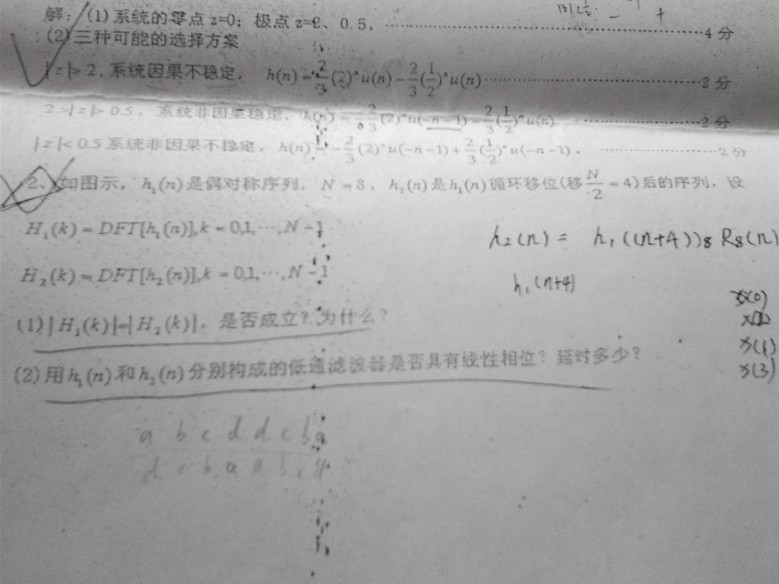 解：(1)系统的零点 z=0；极点 z=2、0.5，……4分
(2)三种可能的选择方案
|z|>2，系统因果不稳定， h(n)=2/3(2)ⁿu(n)-2/3(1/2)ⁿu(n)……2分
2>|z|>0.5，系统非因果稳定，h(n)=-2/3(2)ⁿu(-n-1)-2/3(1/2)ⁿu(n)……2分
|z|<0.5 系统非因果不稳定，h(n)=-2/3(2)ⁿu(-n-1)+2/3(1/2)ⁿu(-n-1)。……2分
2、如图示，h₁(n)是偶对称序列，N=8，h₂(n)是h₁(n)循环移位(移N/2=4)后的序列，设
H₁(k)=DFT[h₁(n)],k=0,1,…,N-1
h₂(n)= h₁((n+4))₈R₈(n)
H₂(k)=DFT[h₂(n)],k=0,1,…,N-1
h₁(n+4)
x(0)
(1)|H₁(k)|=|H₂(k)|，是否成立？为什么？
x(1)
x(3)
(2)用h₁(n)和h₂(n)分别构成的低通滤波器是否具有线性相位？延时多少？
a b c d d c b a
d c b a a b c d